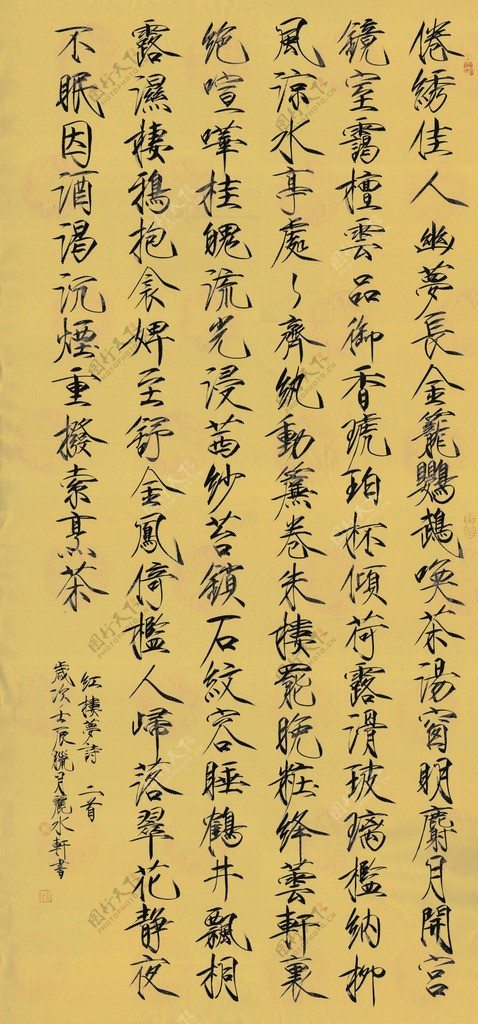 倦綉佳人幽夢長金籠鸚鵡喚茶湯窗明麝月開宮
鏡室靄檀雲品御香琥珀杯傾荷露滑玻璃檻納柳
風涼水亭處々齊紈動簾卷朱樓罷晚粧絳蕓軒裏
絶喧嘩桂魄流光浸茜紗苔鎖石紋容睡鶴井飄桐
露濕棲鴉抱衾婢至舒金鳳倚檻人歸落翠花静夜
不眠因酒渴沉煙重撥索烹茶
紅樓夢詩 二首
歲次壬辰臘月麗水軒書